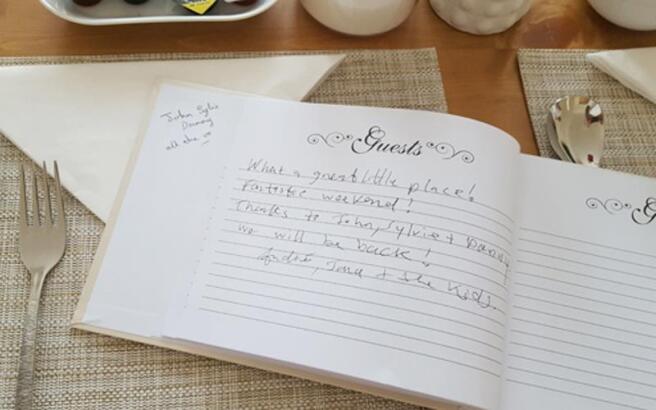 John Sylvie
Danny
all the
Guests
What a great little place!
Fantastic weekend!
Thanks to John, Sylvie + Danny
we will be back!
André, + the Kids.
G